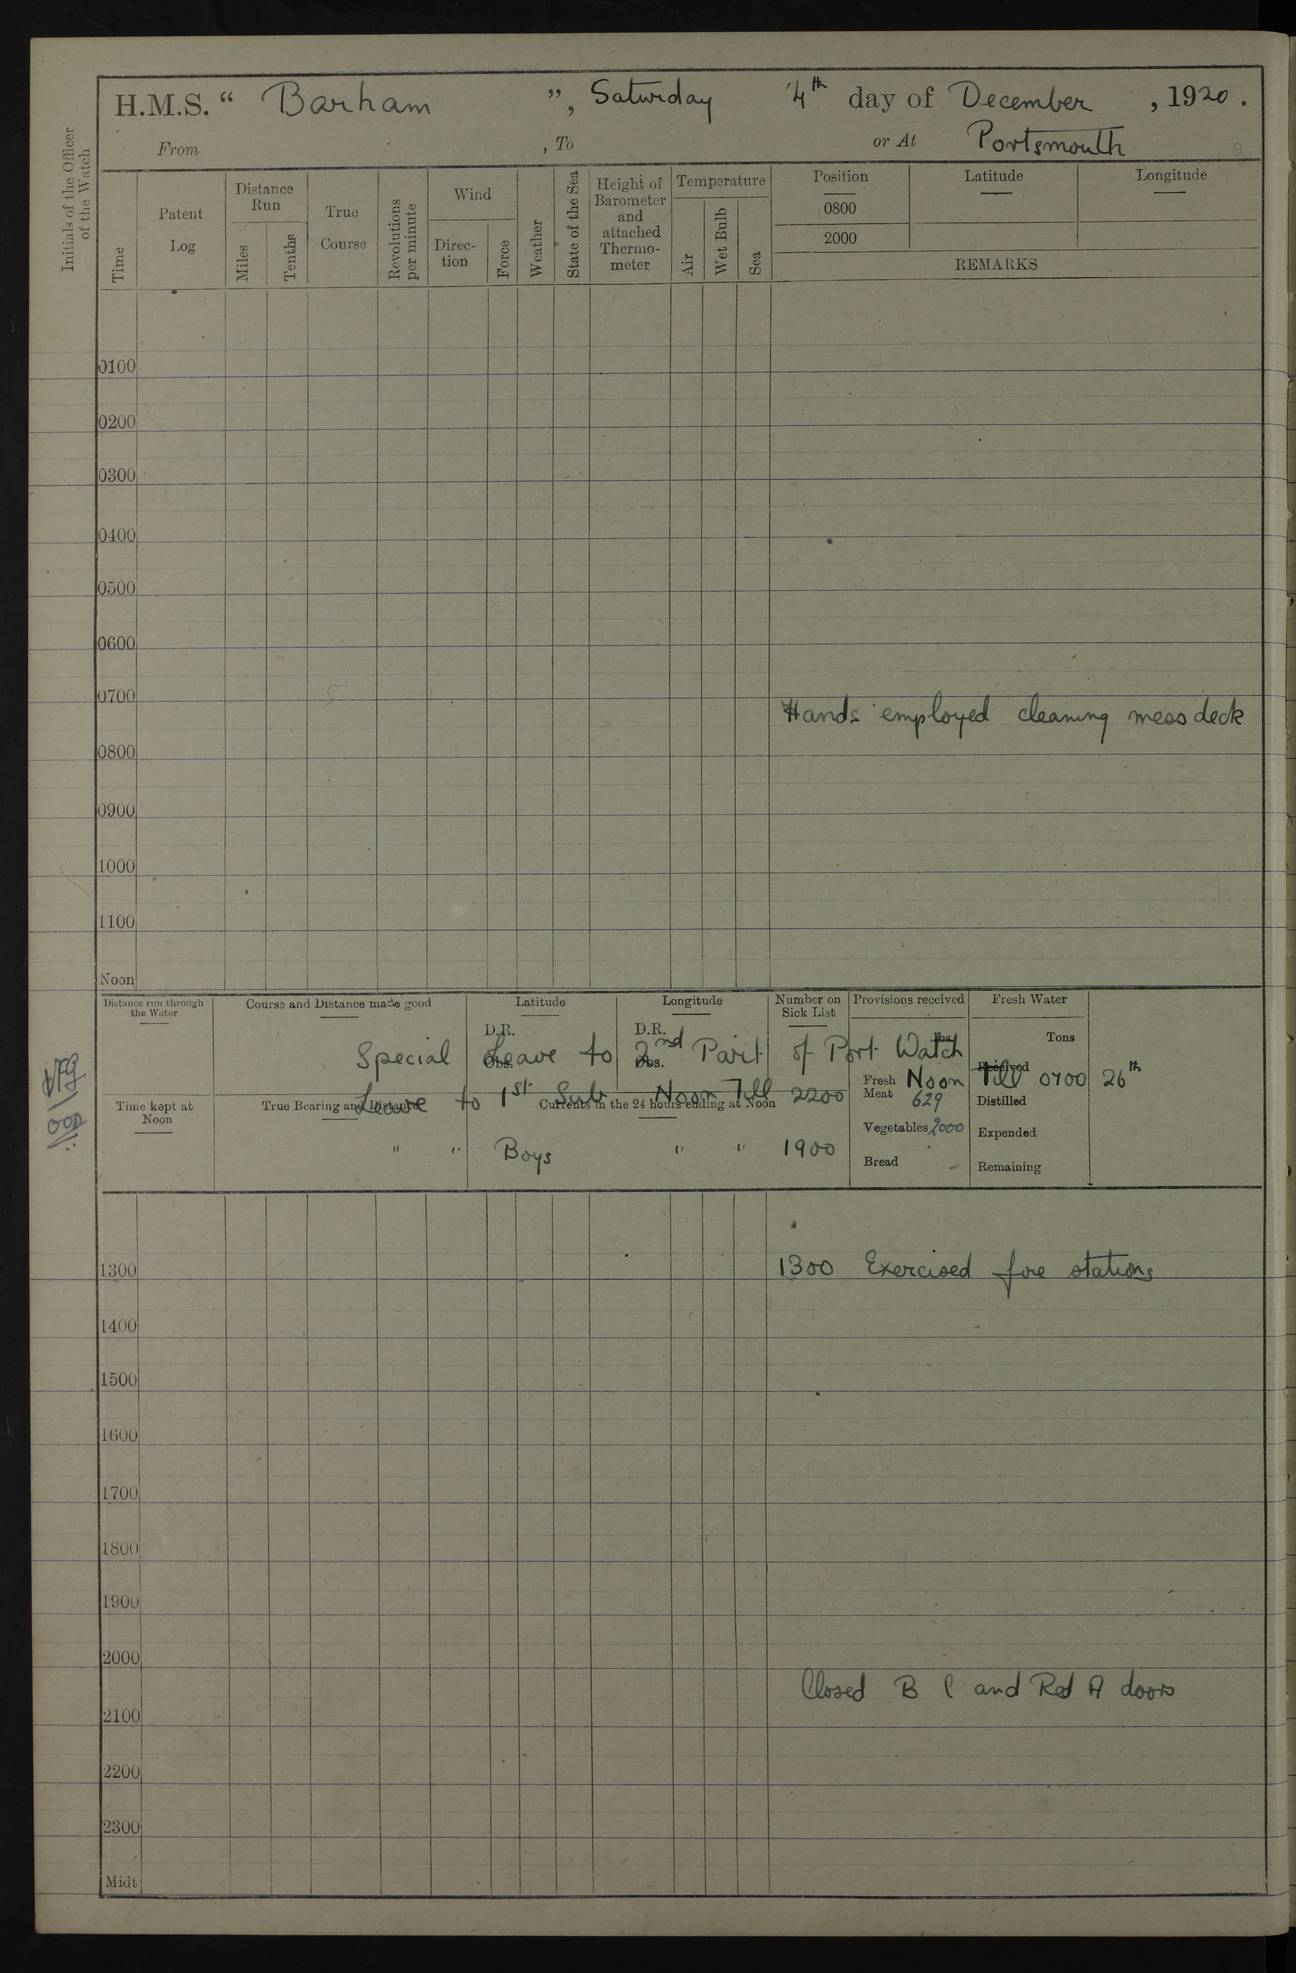 H.M.S. “ Barham ”, Saturday 4th day of December , 1920 .
From , To or At Portsmouth
Initials of the Officer of the Watch
Time
Patent Log
Distance Run
Miles
Tenths
True Course
Revolutions per minute
Wind
Direc-tion
Force
Weather
State of the Sea
Height of Barometer and attached Thermo-meter
Temperature
Air
Wet Bulb
Sea
Position Latitude Longitude
0800
2000
REMARKS
0100
0200
0300
0400
0500
0600
0700
Hands employed cleaning mess deck
0800
0900
1000
1100
Noon
Distance run through the Water
Course and Distance made good
Latitude
D.R.
Obs.
Longitude
D.R.
Obs.
Number on Sick List
Provisions received
lbs.
Fresh Water
Tons
Special Leave to 2nd Part of Port Watch Noon Till 0700 26th
Leave to 1st Sub Noon Till 2200
" " Boys " " 1900
Time kept at Noon
True Bearing and Distance
Currents in the 24 hours ending at Noon
Fresh Meat 629
Vegetables 2000
Bread
Received
Distilled
Expended
Remaining
1300 1300 Exercised fire stations
1400
1500
1600
1700
1800
1900
2000
Closed B C and Red A doors
2100
2200
2300
Midt